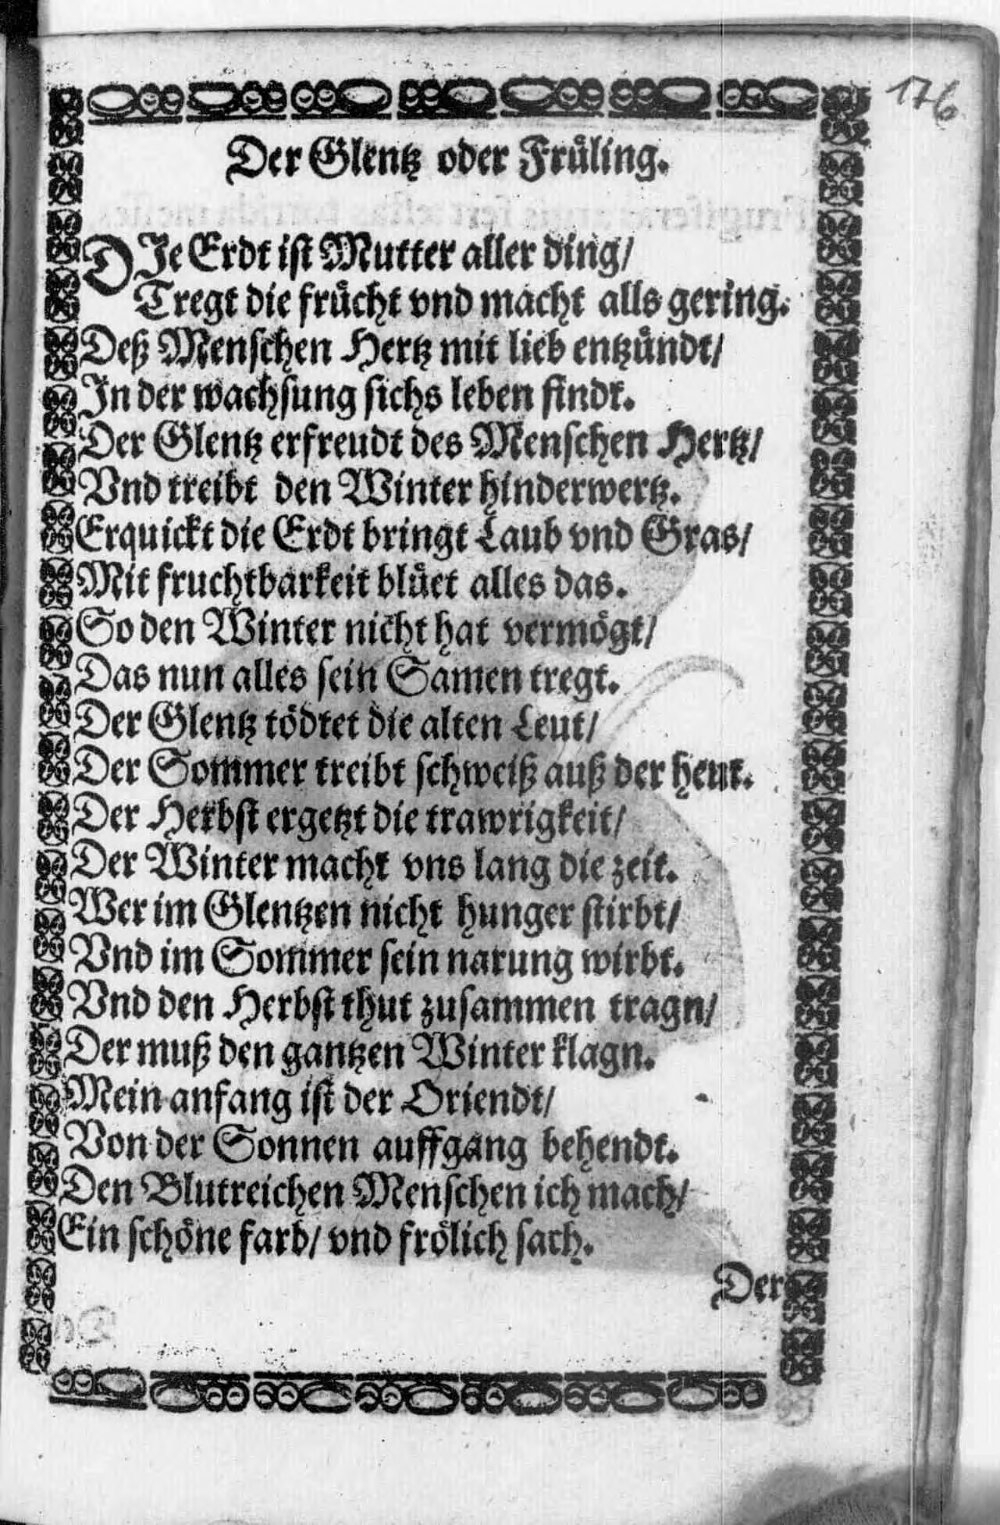 176
Der Glentz oder Fruͤling.
DJe Erdt ist Mutter aller ding/
Tregt die fruͤcht vnd macht alls gering.
Deß Menschen Hertz mit lieb entzuͤndt/
Jn der wachsung sichs leben findt.
Der Glentz erfreudt des Menschen Hertz/
Vnd treibt den Winter hinderwertz.
Erquickt die Erdt bringt Laub vnd Gras/
Mit fruchtbarkeit bluͤet alles das.
So den Winter nicht hat vermoͤgt/
Das nun alles sein Samen tregt.
Der Glentz toͤdtet die alten Leut/
Der Sommer treibt schweiß auß der heut.
Der Herbst ergetzt die trawrigkeit/
Der Winter macht vns lang die zeit.
Wer im Glentzen nicht hunger stirbt/
Vnd im Sommer sein narung wirbt.
Vnd den Herbst thut zusammen tragn/
Der muß den gantzen Winter klagn.
Mein anfang ist der Oriendt/
Von der Sonnen auffgang behendt.
Den Blutreichen Menschen ich mach/
Ein schoͤne farb/ vnd froͤlich sach.
Der